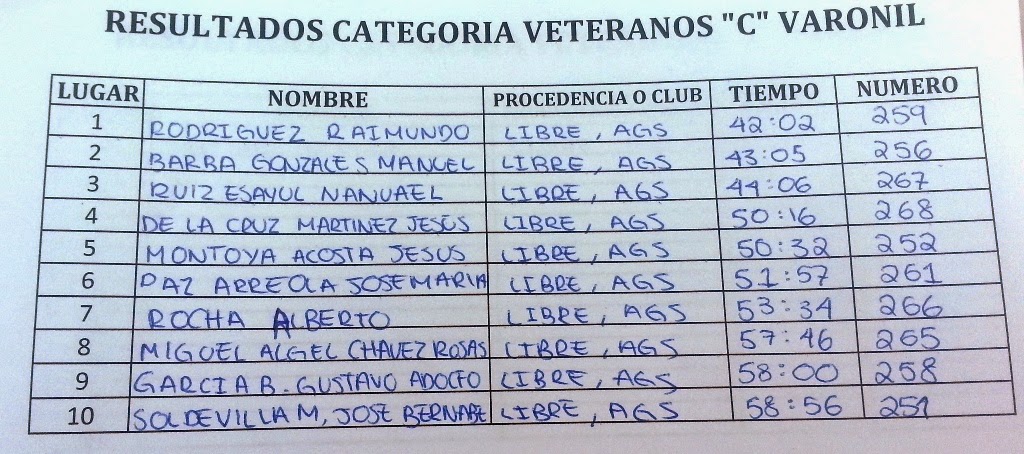 RESULTADOS CATEGORIA VETERANOS "C" VARONIL
LUGAR NOMBRE PROCEDENCIA O CLUB TIEMPO NUMERO
1 RODRIGUEZ RAIMUNDO LIBRE, AGS 42:02 259
2 BARBA GONZALES MANUEL LIBRE, AGS 43:05 256
3 RUIZ ESAYUL NANUAEL LIBRE, AGS 44:06 267
4 DE LA CRUZ MARTINEZ JESÚS LIBRE, AGS 50:16 268
5 MONTOYA ACOSTA JESUS LIBRE, AGS 50:32 252
6 PAZ ARREOLA JOSE MARIA LIBRE, AGS 51:57 261
7 ROCHA ALBERTO LIBRE, AGS 53:34 266
8 MIGUEL ALGEL CHAVEZ ROSAS LIBRE, AGS 57:46 265
9 GARCIA B. GUSTAVO ADOLFO LIBRE, AGS 58:00 258
10 SOLDEVILLA M, JOSE BERNABE LIBRE, AGS 58:56 251